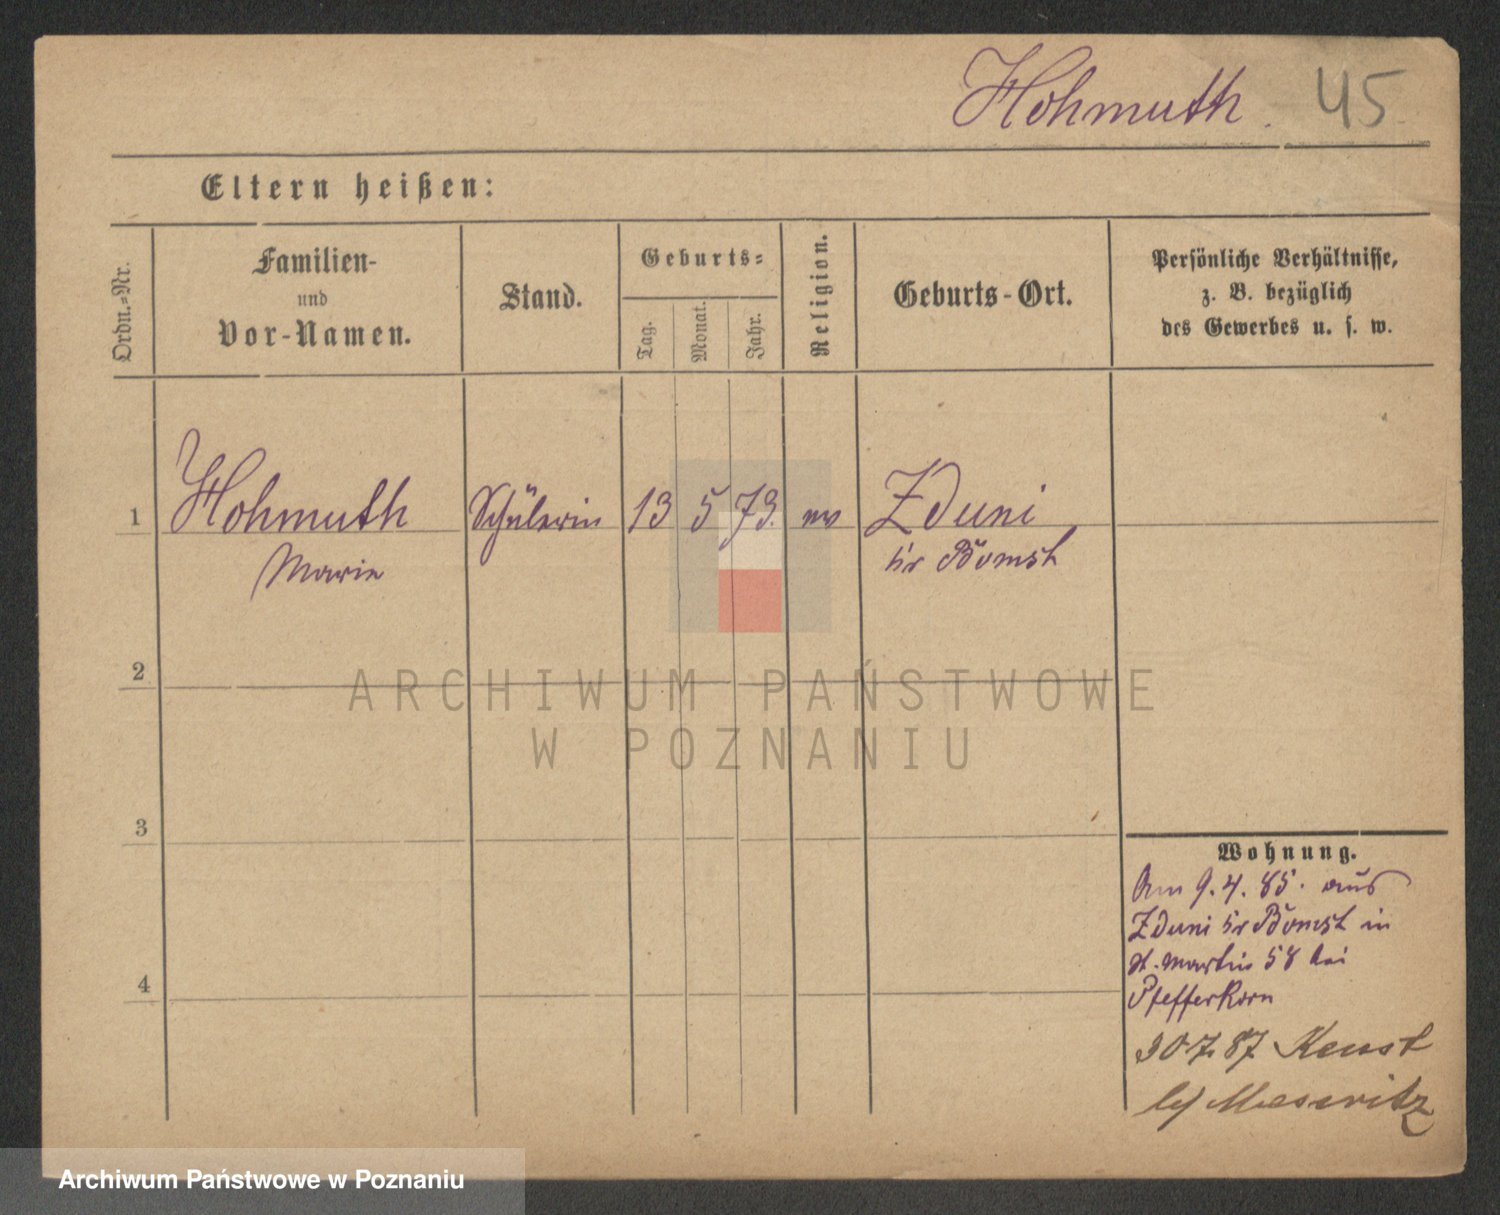 Hohmuth. 45
Eltern heißen:
Ordn.=Nr.
Familien-
und
Vor-Namen.
Stand.
Geburts=
Tag.
Monat.
Jahr.
Religion.
Geburts-Ort.
Persönliche Verhältnisse,
z. B. bezüglich
des Gewerbes u. s. w.
1 Hohmuth Schülerin 13 5 73. ev Zduni
Marie Kr Bomst
2
ARCHIWUM PAŃSTWOWE
W POZNANIU
3
Wohnung.
Am 9.4.85. aus
Zduni Kr Bomst in
St. Martin 58 bei
Pfefferkorn
4
30 7. 87
Meseritz
Archiwum Państwowe w Poznaniu